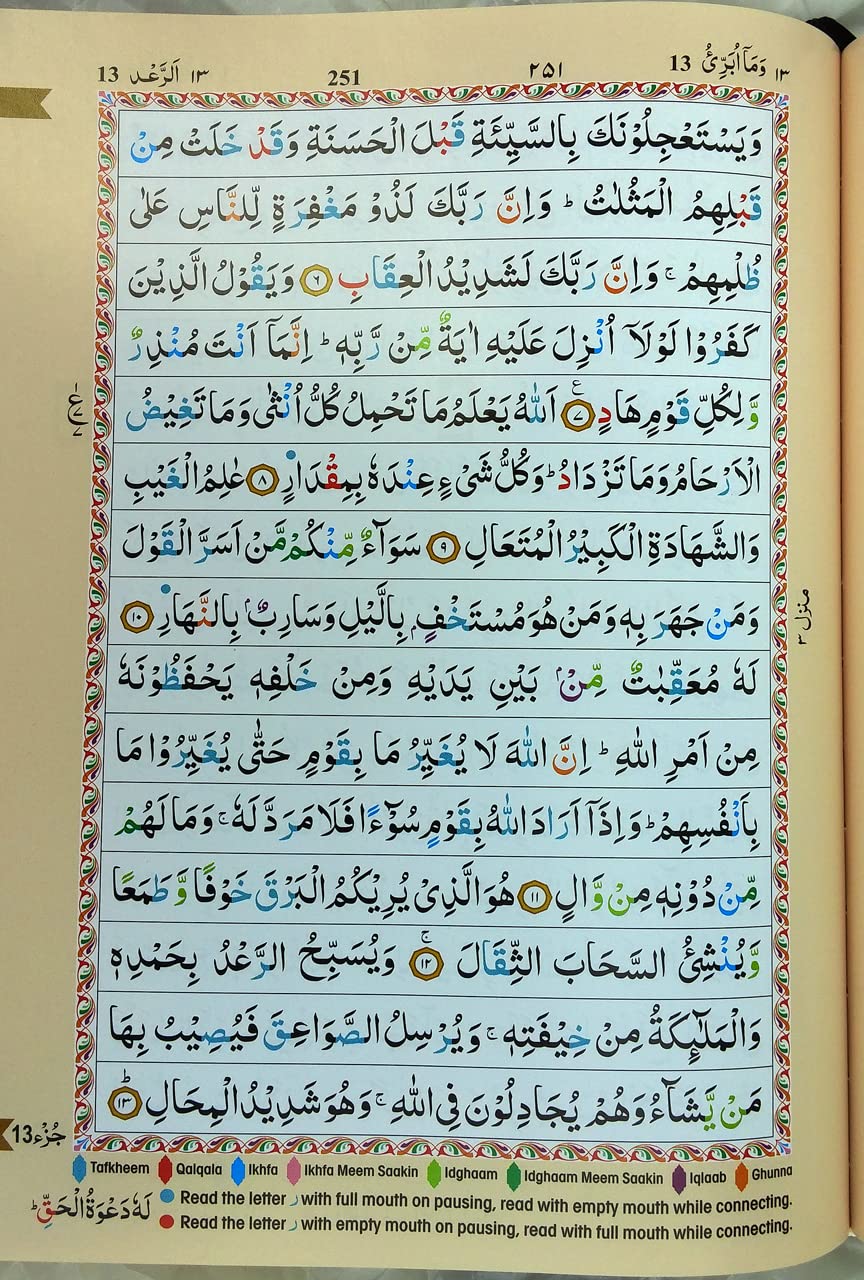 13 اَلرَّعْد ١٣
251
٢٥١
13 وَمَآ اُبَرِّئُ ١٣
وَيَسْتَعْجِلُوْنَكَ بِالسَّيِّئَةِ قَبْلَ الْحَسَنَةِ وَقَدْ خَلَتْ مِنْ
قَبْلِهِمُ الْمَثُلٰتُ ؕ وَاِنَّ رَبَّكَ لَذُوْ مَغْفِرَةٍ لِّلنَّاسِ عَلٰى
ظُلْمِهِمْ ۚ وَاِنَّ رَبَّكَ لَشَدِيْدُ الْعِقَابِ ۶ وَيَقُوْلُ الَّذِيْنَ
كَفَرُوْا لَوْلَاۤ اُنْزِلَ عَلَيْهِ اٰيَةٌ مِّنْ رَّبِّهٖ ؕ اِنَّمَاۤ اَنْتَ مُنْذِرٌ
وَّلِكُلِّ قَوْمٍ هَادٍ ۷ ع اَللّٰهُ يَعْلَمُ مَا تَحْمِلُ كُلُّ اُنْثٰى وَمَا تَغِيْضُ
الْاَرْحَامُ وَمَا تَزْدَادُ ؕ وَكُلُّ شَىْءٍ عِنْدَهٗ بِمِقْدَارٍ ۸ عٰلِمُ الْغَيْبِ
وَالشَّهَادَةِ الْكَبِيْرُ الْمُتَعَالِ ۹ سَوَآءٌ مِّنْكُمْ مَّنْ اَسَرَّ الْقَوْلَ
وَمَنْ جَهَرَ بِهٖ وَمَنْ هُوَ مُسْتَخْفٍۭ بِالَّيْلِ وَسَارِبٌۢ بِالنَّهَارِ ۱۰
لَهٗ مُعَقِّبٰتٌ مِّنْۢ بَيْنِ يَدَيْهِ وَمِنْ خَلْفِهٖ يَحْفَظُوْنَهٗ
مِنْ اَمْرِ اللّٰهِ ؕ اِنَّ اللّٰهَ لَا يُغَيِّرُ مَا بِقَوْمٍ حَتّٰى يُغَيِّرُوْا مَا
بِاَنْفُسِهِمْ ؕ وَاِذَاۤ اَرَادَ اللّٰهُ بِقَوْمٍ سُوْٓءًا فَلَا مَرَدَّ لَهٗ ۚ وَمَا لَهُمْ
مِّنْ دُوْنِهٖ مِنْ وَّالٍ ۱۱ هُوَ الَّذِىْ يُرِيْكُمُ الْبَرْقَ خَوْفًا وَّطَمَعًا
وَّيُنْشِئُ السَّحَابَ الثِّقَالَ ۱۲ ۚ وَيُسَبِّحُ الرَّعْدُ بِحَمْدِهٖ
وَالْمَلٰٓئِكَةُ مِنْ خِيْفَتِهٖ ۚ وَيُرْسِلُ الصَّوَاعِقَ فَيُصِيْبُ بِهَا
مَنْ يَّشَآءُ وَهُمْ يُجَادِلُوْنَ فِى اللّٰهِ ۚ وَهُوَ شَدِيْدُ الْمِحَالِ ۱۳ ؕ
منزل ٣
جُزْء 13
Tafkheem Qalqala Ikhfa Ikhfa Meem Saakin Idghaam Idghaam Meem Saakin Iqlaab Ghunna
Read the letter ر with full mouth on pausing, read with empty mouth while connecting.
Read the letter ر with empty mouth on pausing, read with full mouth while connecting.
لَهٗ دَعْوَةُ الْحَقِّ ؕ